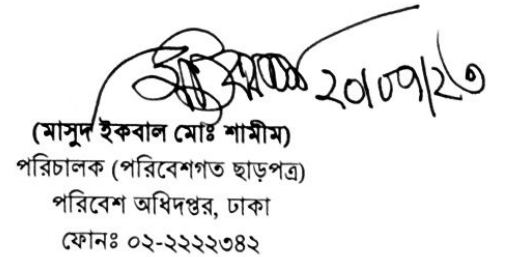 ২০/০৭/২৩
(মাসুদ ইকবাল মোঃ শামীম)
পরিচালক (পরিবেশগত ছাড়পত্র)
পরিবেশ অধিদপ্তর, ঢাকা
ফোনঃ ০২-২২২২৩৪২